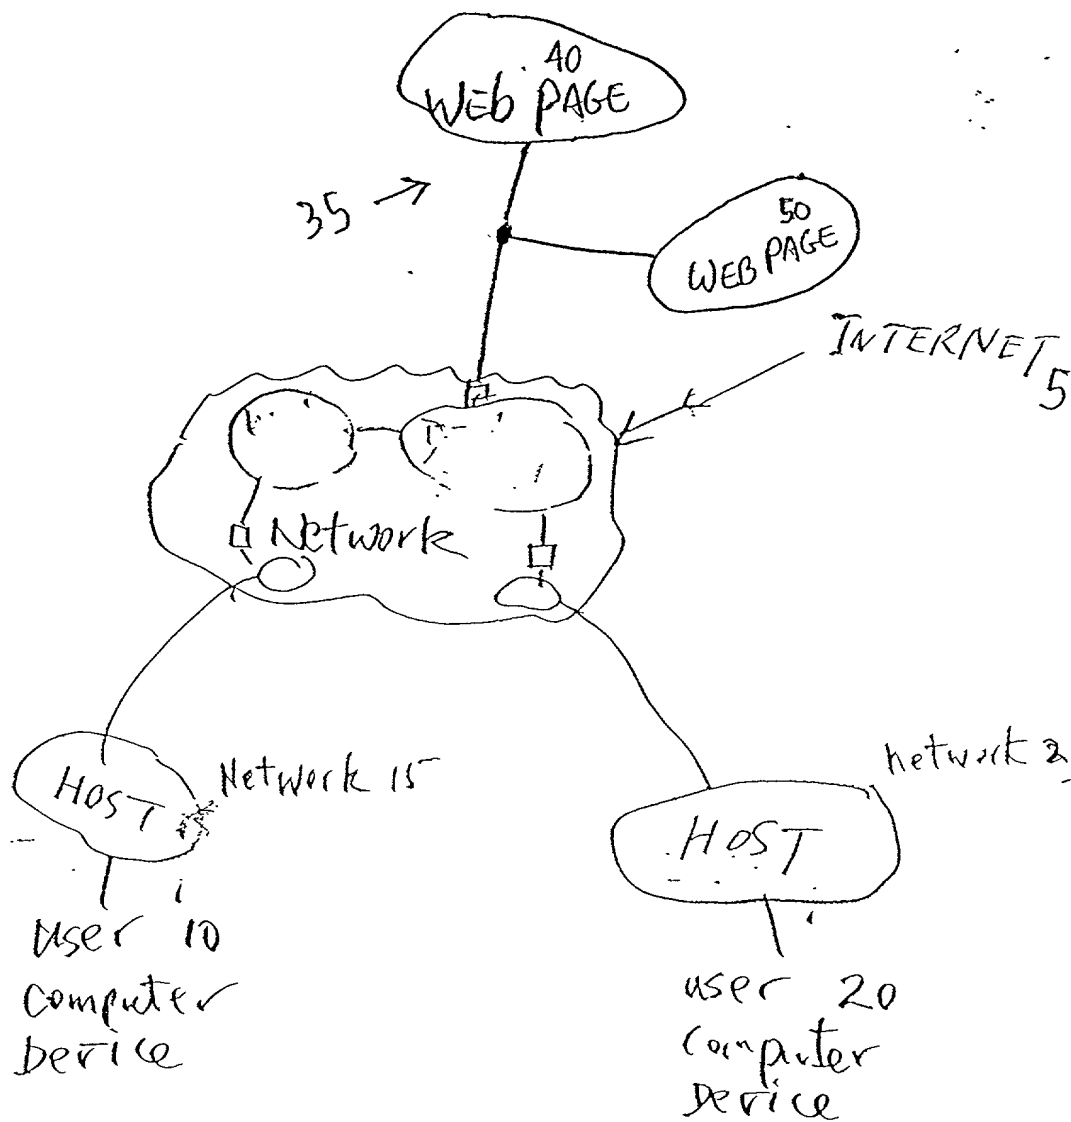 40
WEb PAGE
35
50
WEB PAGE
INTERNET
5
Network
HOST
Network 15
network 2
HOST
user 10
computer
Device
user 20
computer
Device